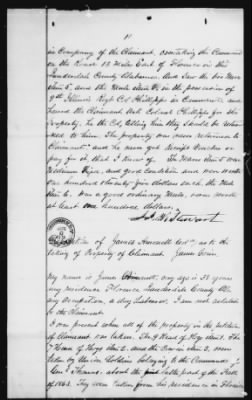 11
in Company of the Claimant, overtaking the Command
on the Road 13 miles East of Florence in this
Lauderdale County Alabama. And saw the two Mares
Item 5, and the Mule Item 6, in the possession of
9th Illinois Regt Col Phillipps in Command and
heard the Claimant Ask Colonel Phillips for the
property. In the Col telling him they should be returned
to him. The property was never returned to
Claimant, and he never got Receipt Voucher or
pay for it, that I know of. The Mares Item 5 were
Medium Size, and good Condition and were worth
one hundred & twenty five dollars each, the Mule
Item 6, was a good ordinary Mule, worn worth
at least one hundred dollars.
Stewart
of James as to the
taking of Property of Claimant James
My name is James any age is 38 years
my residence Florence Lauderdale County Ala
my Occupation, a day Laborer. I am not related
to the Claimant.
I was present when all of the property in the petition
of Claimant was taken. The Head of Hogs Item 1. The
Head of Hogs Item 2, and the Corn Item 3, were
taken by the Soldiers belonging to the Command
Genl about the latter part of the Fall
of 1863. They were taken from his residence in Florence